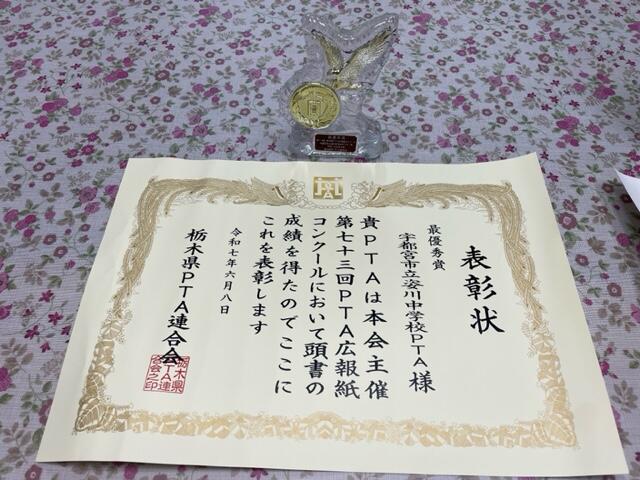 表彰状
最優秀賞
宇都宮市立姿川中学校PTA様
貴PTAは本会主催
第七十三回PTA広報紙
コンクールにおいて頭書の
成績を得たのでここに
これを表彰します
令和七年六月八日
栃木県PTA連合会
栃木県
PTA連
合会之印